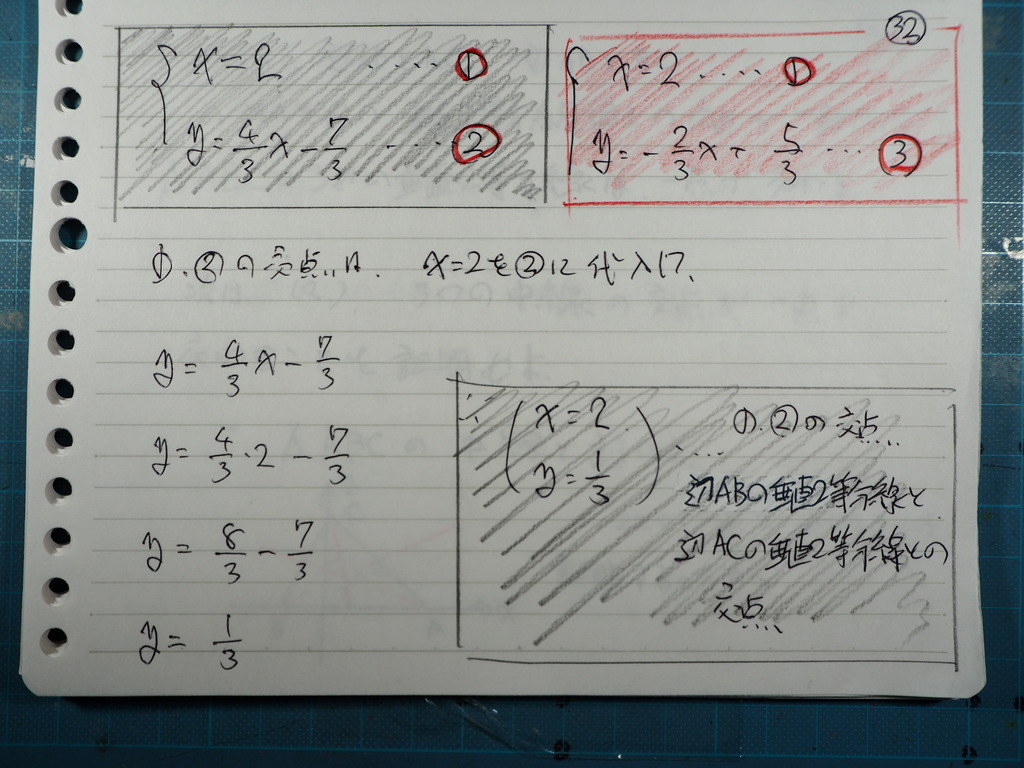 32
x=2 ‥‥ ①
y=4/3x-7/3 ‥‥ ②
x=2 ‥‥ ①
y=-2/3x+5/3 ‥‥ ③
①.②の交点は. x=2を②に代入して、
y=4/3x-7/3
y=4/3・2-7/3
y=8/3-7/3
y=1/3
∴(x=2 y=1/3) ‥‥ ①.②の交点
辺ABの垂直2等分線と
辺ACの垂直2等分線との
交点